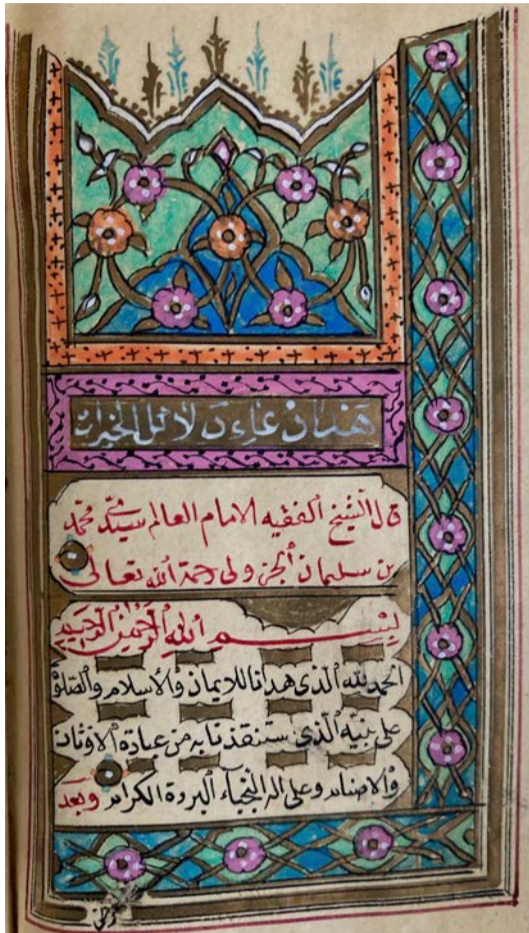 هذا دعاء دلائل الخيرات
قال الشيخ الفقيه الامام العالم سيدى محمد
بن سليمان الجزولى رحمة الله تعالى
بسم الله الرحمن الرحيم
الحمد لله الذى هدانا للايمان والاسلام والصلوة
على نبيه الذى ستنقذنا به من عبادة الاوثان
والاصنام وعلى اله النجباء البررة الكرام وبعد